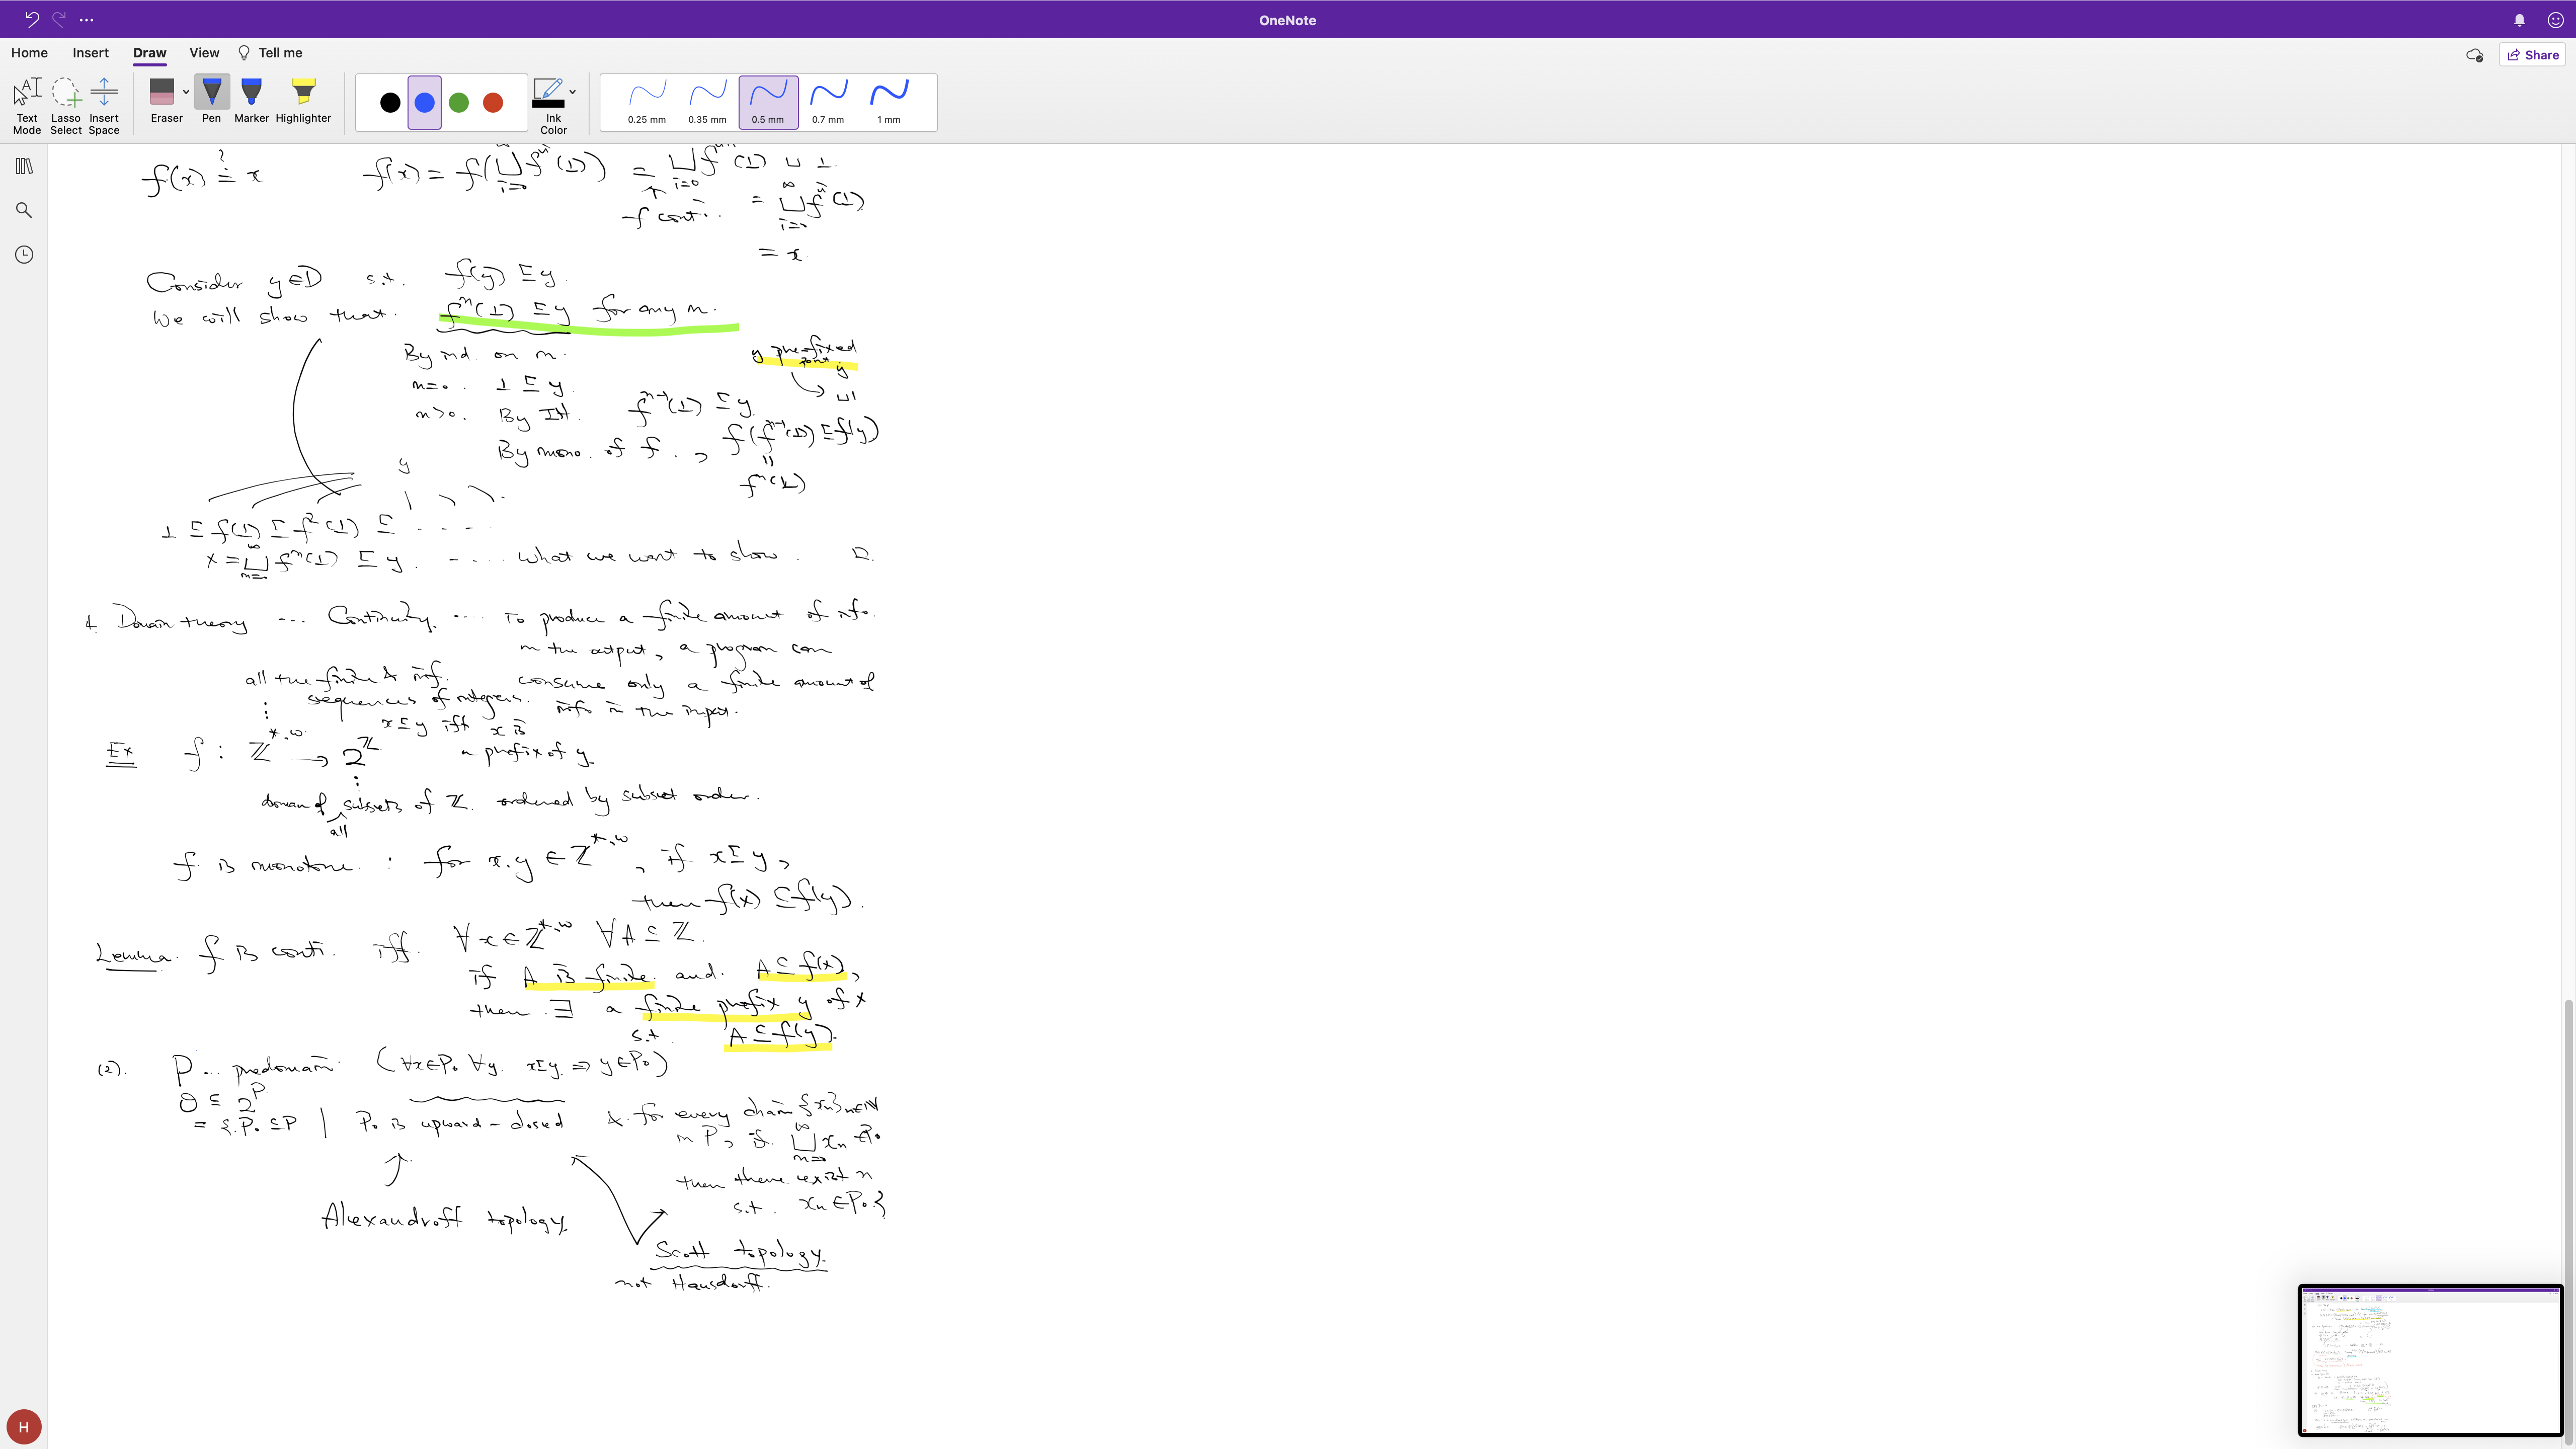 OneNote
Home Insert Draw View Tell me
Share
Text Mode
Lasso Select
Insert Space
Eraser
Pen
Marker
Highlighter
Ink Color
0.25 mm
0.35 mm
0.5 mm
0.7 mm
1 mm
f(x) ≟ x
f(x) = f(⊔ fⁿ(⊥)) = ⊔ fⁿ⁺¹(⊥) ⊔ ⊥
i=0
i=0
f conti.
= ⊔ fⁿ(⊥)
= x
Consider y∈D s.t. f(y) ⊑ y.
We will show that fⁿ(⊥) ⊑ y for any n.
By ind. on n.
y pre-fixed point
n=0. ⊥ ⊑ y
n>0. By IH. fⁿ⁻¹(⊥) ⊑ y
By mono. of f, f(fⁿ⁻¹(⊥)) ⊑ f(y)
fⁿ(⊥)
y
⊥ ⊑ f(⊥) ⊑ f²(⊥) ⊑ ....
x = ⊔ fⁿ(⊥) ⊑ y .... what we want to show. □
Domain theory ... Continuity .... To produce a finite amount of info.
in the output, a program can
consume only a finite amount of
info in the input.
all the finite & inf.
sequences of integers.
x ⊑ y iff x is
a prefix of y.
Ex f : ℤ*,ω → 2^ℤ
domain of all subsets of ℤ ordered by subset order.
f is monotone : for x,y ∈ ℤ*,ω, if x ⊑ y,
then f(x) ⊆ f(y).
Lemma. f is conti. iff ∀x∈ℤ*,ω ∀A ⊆ ℤ.
if A is finite and A ⊆ f(x),
then ∃ a finite prefix y of x
s.t. A ⊆ f(y).
(2). P ... predomain (∀x∈P₀ ∀y. x⊑y ⇒ y∈P₀)
O ⊆ 2^P
= {P₀ ⊆ P | P₀ is upward-closed & for every chain {xₙ}n∈ℕ
in P, if ⊔ xₙ ∈ P₀
then there exist n
s.t. xₙ ∈ P₀}
Alexandroff topology
Scott topology
not Hausdorff.
H